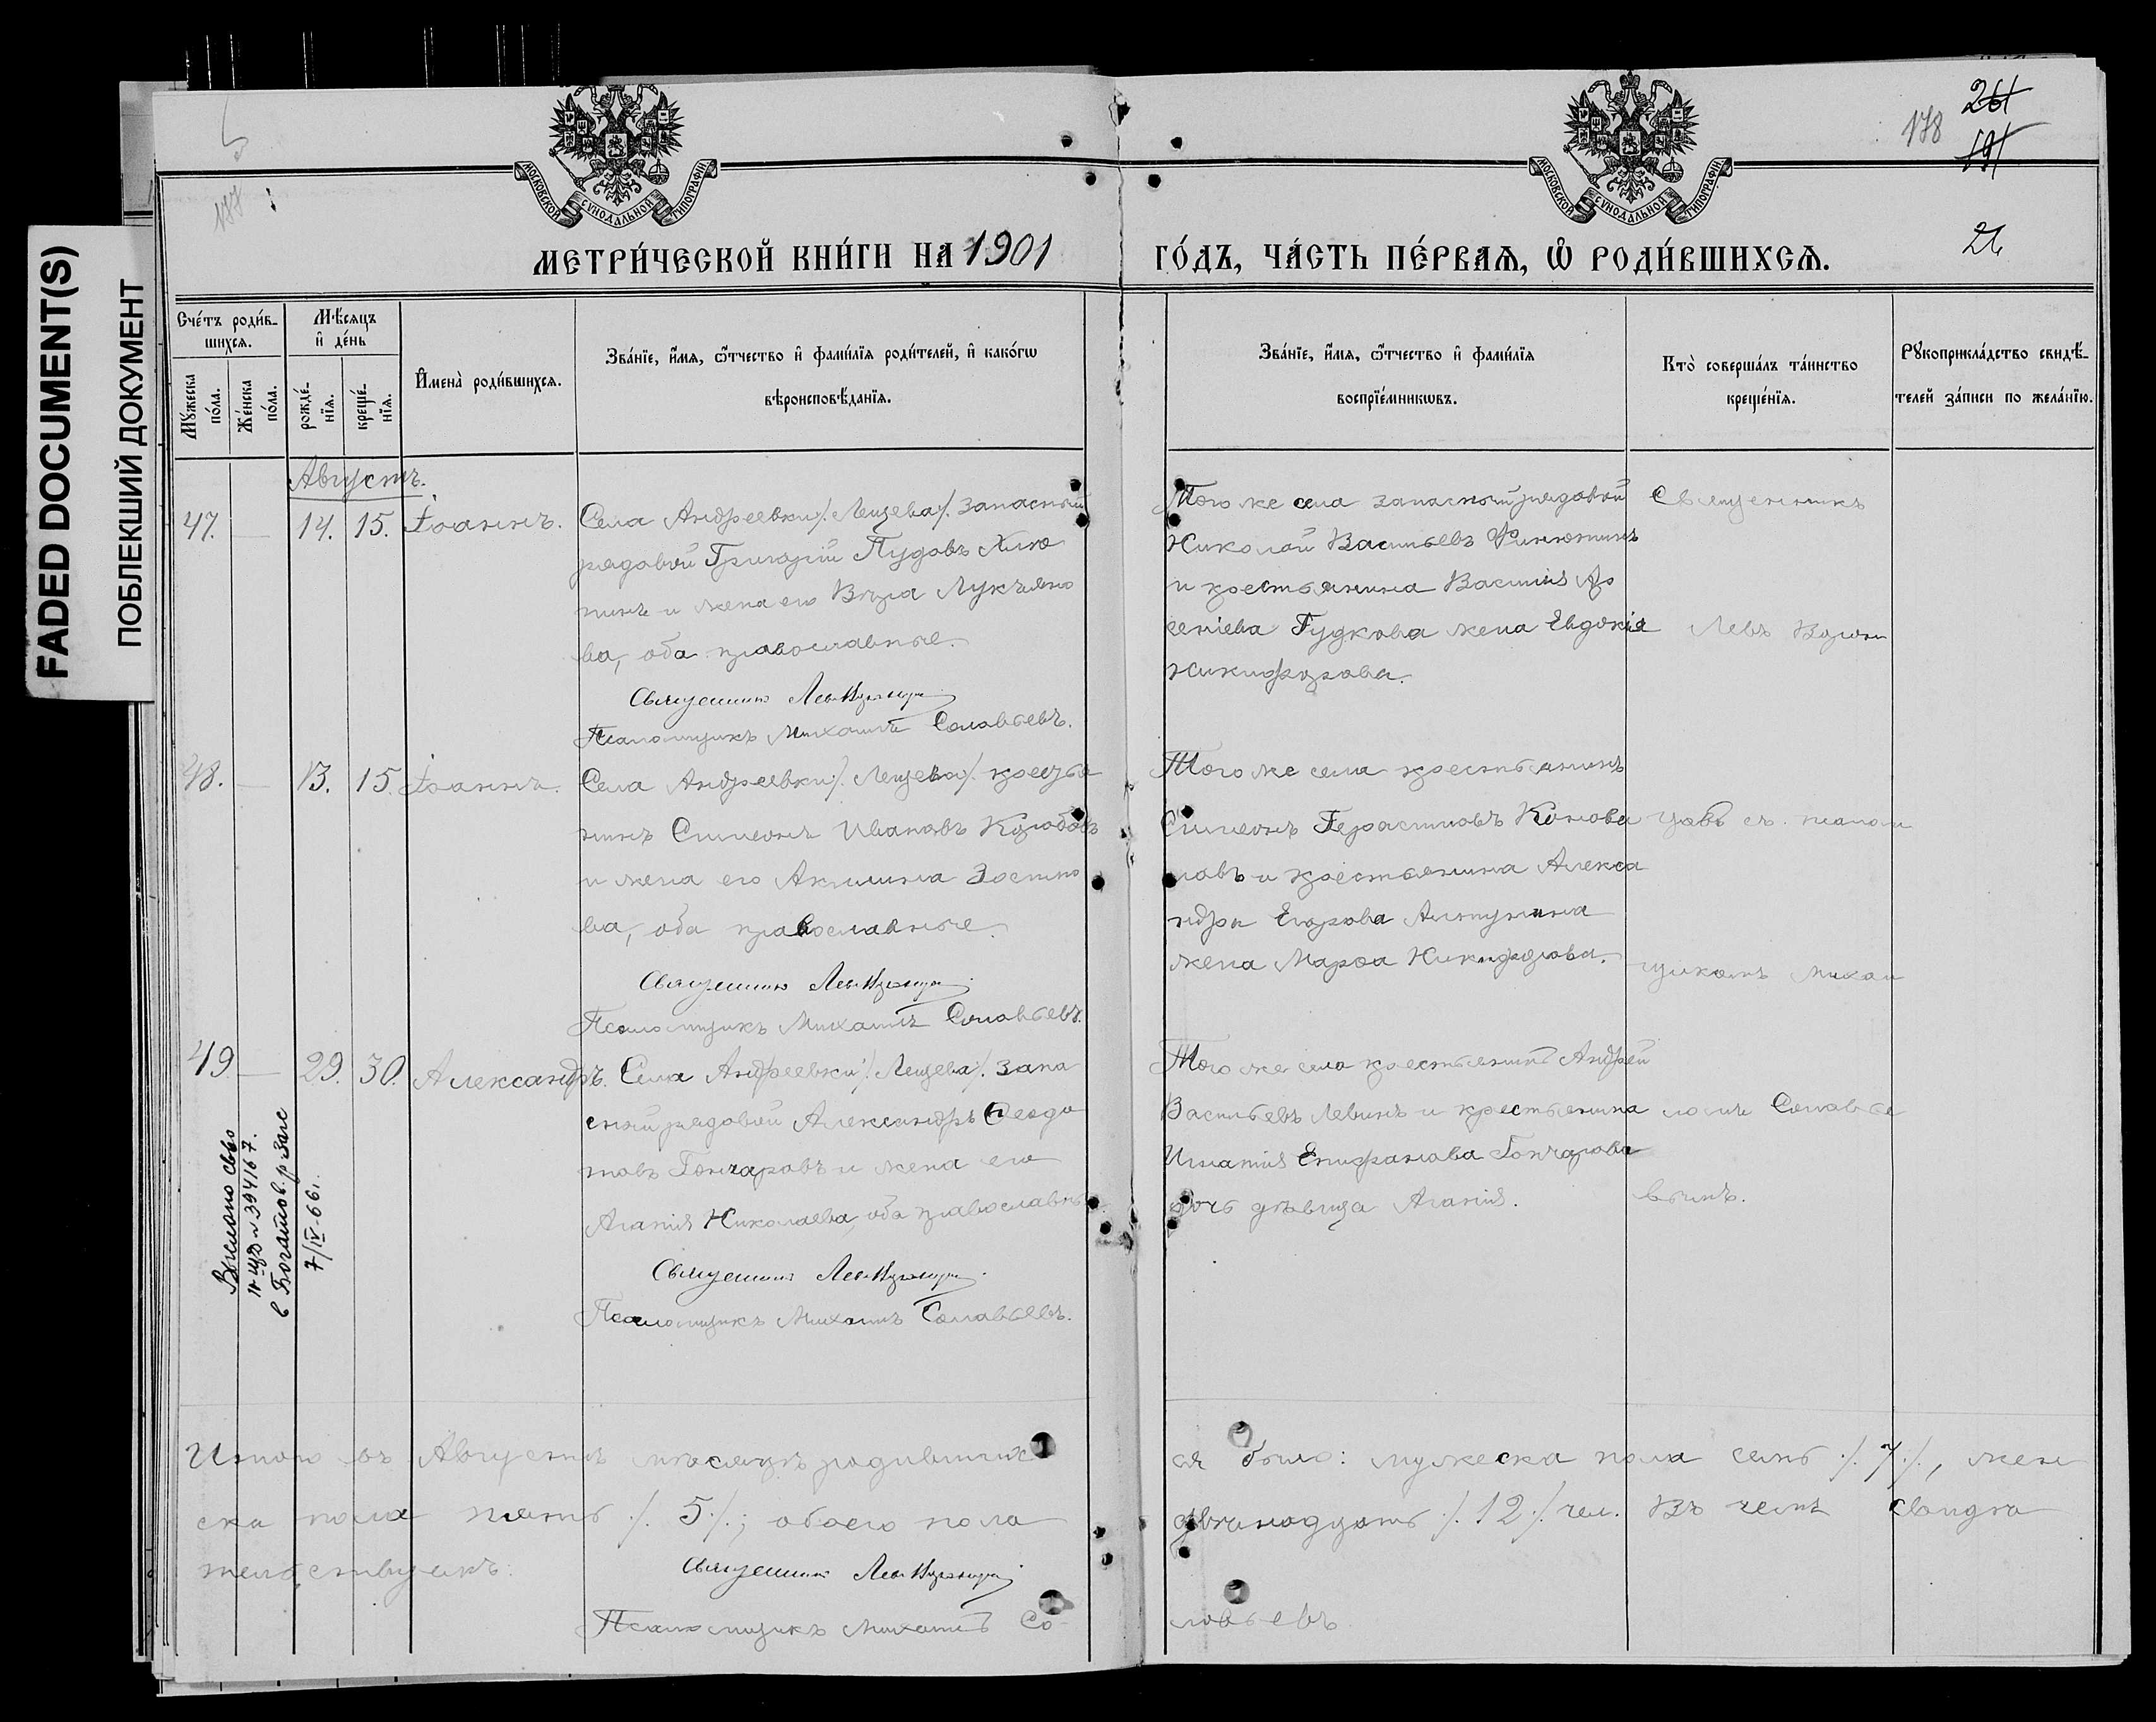 FADED DOCUMENT(S)
ПОБЛЕКШИЙ ДОКУМЕНТ
178
261
191
21
177
МОСКОВСКОЙ СѴНОДАЛЬНОЙ ТИПОГРАФІИ
МОСКОВСКОЙ СѴНОДАЛЬНОЙ ТИПОГРАФІИ
МЕТРИ́ЧЕСКОЙ КНИ́ГИ НА 1901 ГО́ДЪ, ЧА́СТЬ ПЕ́РВАЯ, Ѡ҆ РОДИ́ВШИХСЯ.
Сче́тъ роди́в-
шихся.
Мѣ́сяцъ
и҆ де́нь
Мꙋ́жеска
по́ла.
Же́нска
по́ла.
рожде́-
нїя.
креще́-
нїя.
И҆мена̀ роди́вшихся.
Зва́нїе, и҆́мя, ѻ҆́тчество и҆ фами́лїя роди́телей, и҆ како́гѡ
вѣроисповѣ́данїя.
Зва́нїе, и҆́мя, ѻ҆́тчество и҆ фами́лїя
воспрїе́мникѡвъ.
Кто̀ соверша́лъ та́инство
креще́нїя.
Рꙋкоприкла́дство свидѣ́-
телей за́писи по жела́нїю.
Августъ.
47. — 14. 15. Іоаннъ.
Села Андреевки /. Лещева /. запасный
рядовой Григорій Пудовъ Хлю
пинъ и жена его Вѣра Лукъяно
ва, оба православные.
Священникъ Левъ
Псаломщикъ Михаилъ Соловьевъ.
Того же села запасный рядовой
Николай Васильевъ Финютинъ
и крестьянина Василія Ар
сеніева Гудкова жена Евдокія
Никифорова.
Священникъ
Левъ
48. — 13. 15. Іоаннъ.
Села Андреевки /. Лещева /. крестья
нинъ Симеонъ Ивановъ Коробовъ
и жена его Акилина Зосимо
ва, оба православные.
Священникъ Левъ
Псаломщикъ Михаилъ Соловьевъ.
Того же села крестьянинъ
Симеонъ Герасимовъ Конова
ловъ и крестьянина Алекса
ндра Егорова Алтунина
жена Марѳа Никифорова.
съ псалом
щикомъ Михаи
49 — 29. 30. Александръ.
Села Андреевки /. Лещева /. запа
сный рядовой Александръ Ѳеодо
товъ Гончаровъ и жена его
Агапія Николаева, оба православн
Священникъ Левъ
Псаломщикъ Михаилъ Соловьевъ.
Того же села крестьянинъ Андрей
Васильевъ Левинъ и крестьянина
Игнатія Епифанова Гончарова
дочь дѣвица Агапія.
ломъ Соловье
вымъ.
Выслано св-во
№ 394167.
в Богатов. р-Загс
7/IV-66г.
Итого въ Августѣ мѣсяцѣ родивших
ся было: мужеска пола семь ./. 7 ./., жен
ска пола пять ./. 5 ./.; обоего пола
двѣнадцать ./. 12 ./. чел. Въ чемъ свидѣ
тельствуемъ:
Священникъ Левъ
Псаломщикъ Михаилъ Со-
ловьевъ